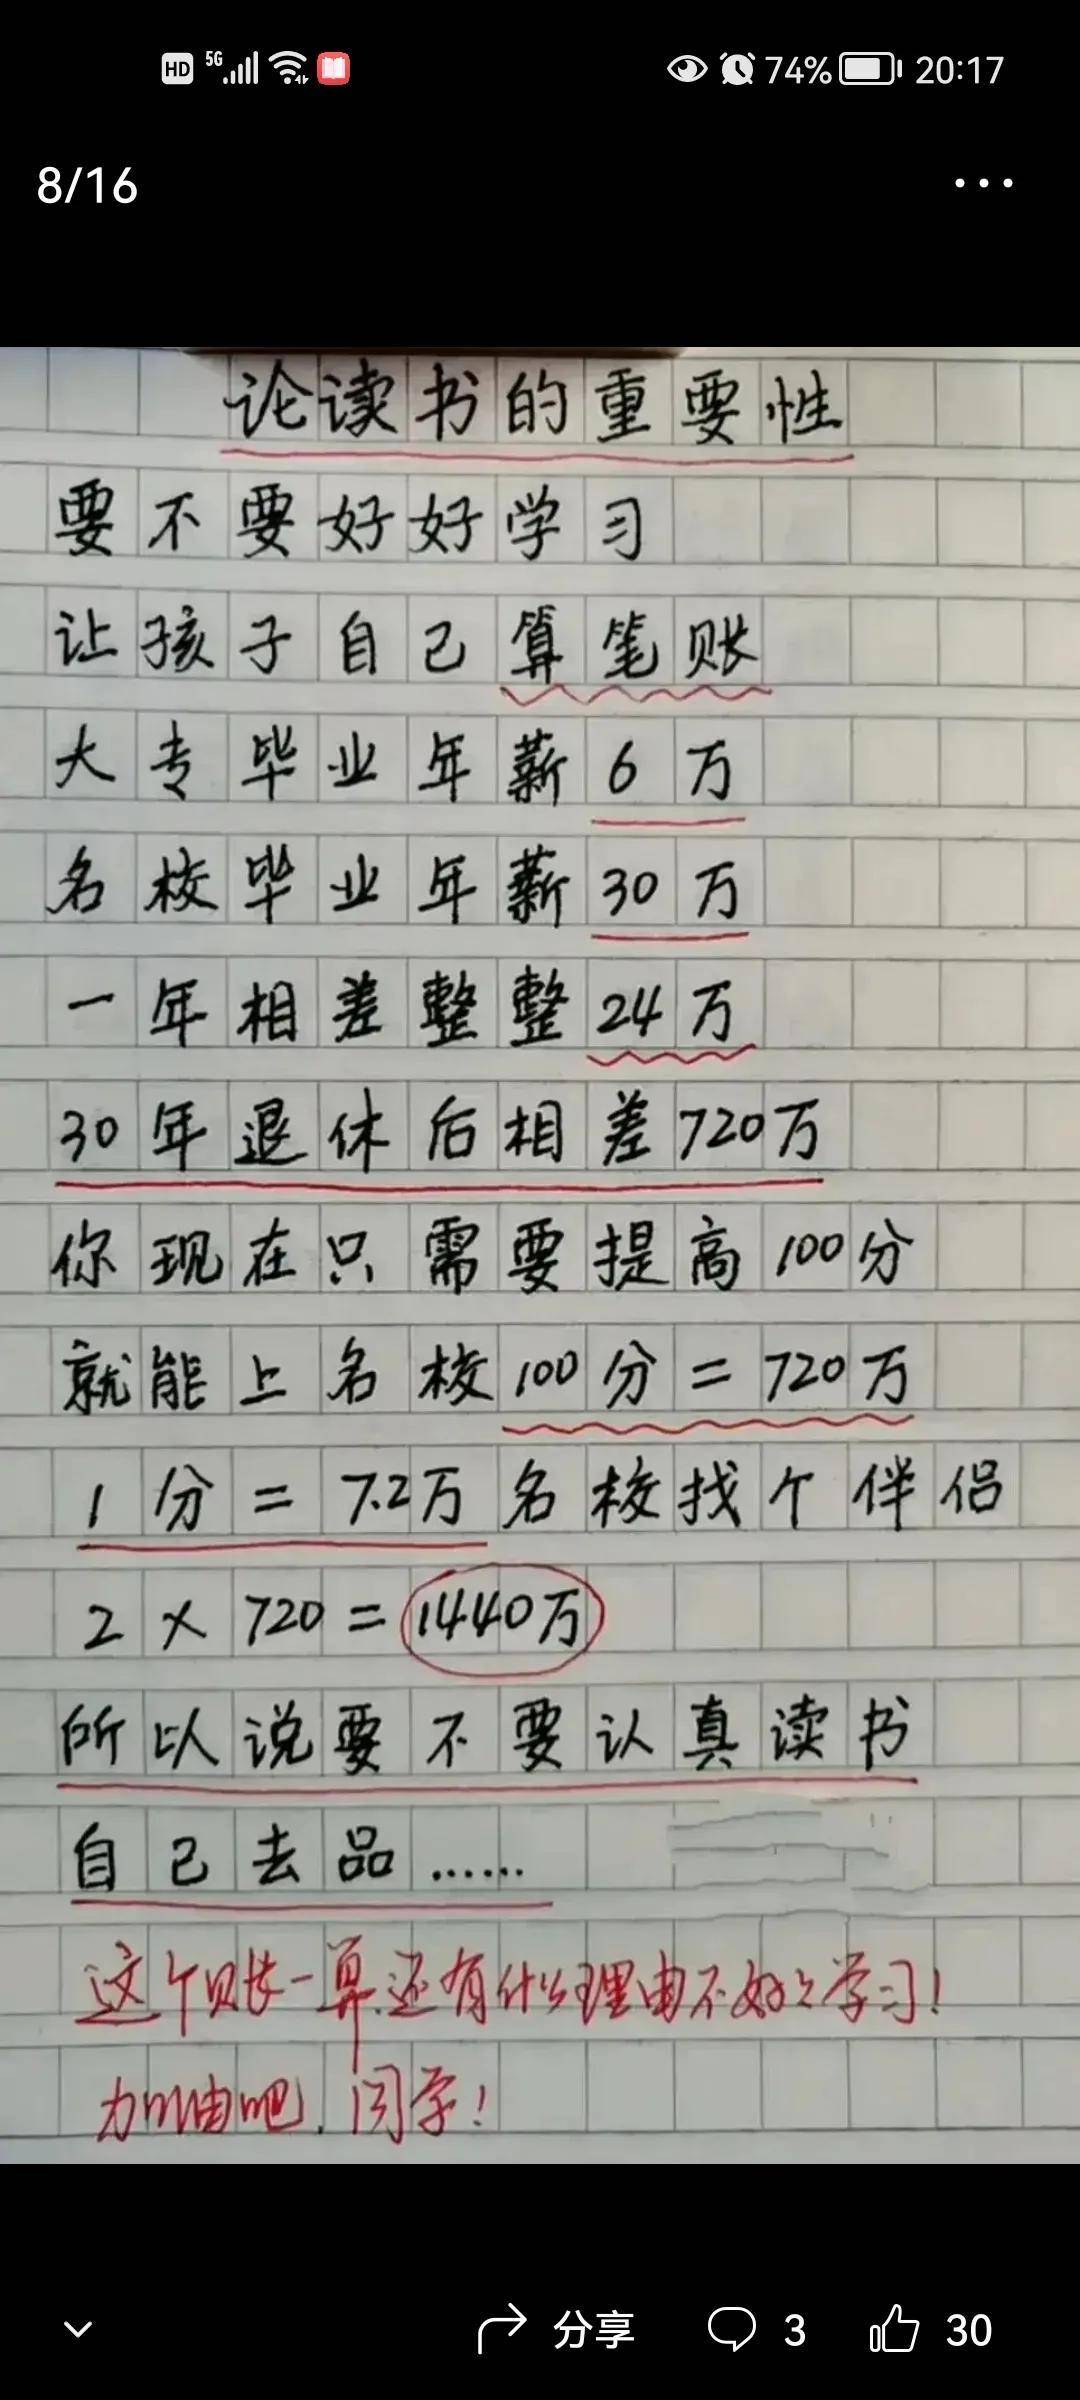 HD 5G 74% 20:17
8/16
论读书的重要性
要不要好好学习
让孩子自己算笔账
大专毕业年薪6万
名校毕业年薪30万
一年相差整整24万
30年退休后相差720万
你现在只需要提高100分
就能上名校100分=720万
1分=7.2万名校找个伴侣
2×720=1440万
所以说要不要认真读书
自己去品……
这个账一算还有什么理由不好好学习!
加油吧,同学!
分享 3 30